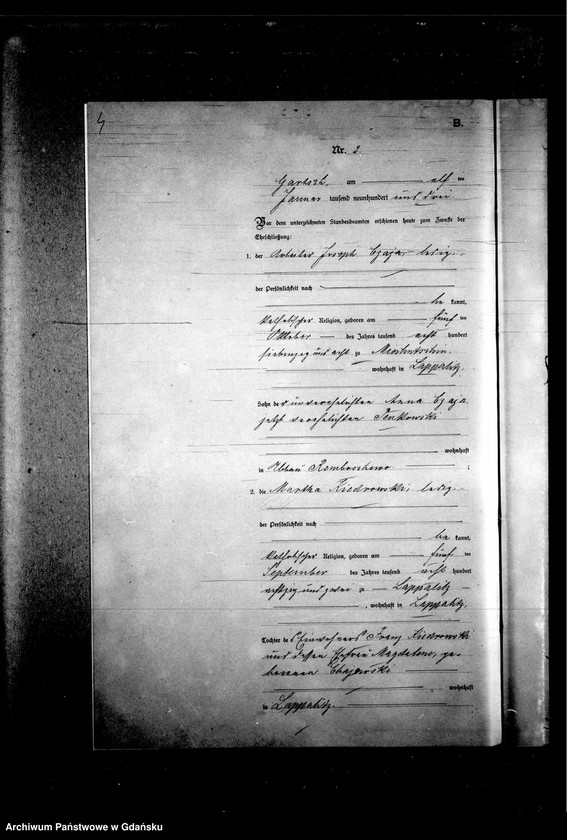 4
B.
Nr. 2.
Gartsch, am elf ten
Januar tausend neunhundert und drei.
Vor dem unterzeichneten Standesbeamten erschienen heute zum Zwecke der
Eheschließung:
1. der Arbeiter Joseph Czaja, ledig,
der Persönlichkeit nach
be kannt,
katholischer Religion, geboren am fünf ten
Oktober des Jahres tausend acht hundert
siebenzig und acht zu
wohnhaft in Lappalitz,
Sohn der unverehelichten Anna Czaja
jetzt verehelichten Penkowski
wohnhaft
in Abbau Remboschewo ;
2. die Martha Kiedrowski, ledig,
der Persönlichkeit nach
be kannt,
katholischer Religion, geboren am fünf ten
September des Jahres tausend acht hundert
achtzig und zwei zu Lappalitz
, wohnhaft in Lappalitz,
Tochter des Einwohners Franz Kiedrowski
und dessen Ehefrau Magdalene, ge-
borenen
wohnhaft
in Lappalitz.
Archiwum Państwowe w Gdańsku